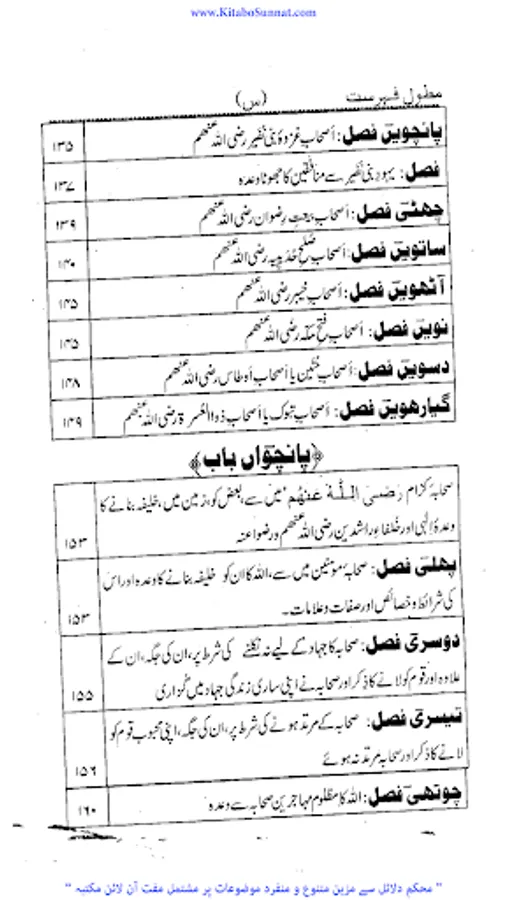 www.KitaboSunnat.com
مطول فہرست (س)
پانچویں فصل: اَصحابِ غزوۂ بنی نظیر رضی اللہ عنھم ۱۳۵
فصل: یہودِ بنی نظیر سے منافقین کا جھوٹا وعدہ ۱۳۷
چھٹی فصل: اَصحابِ بیعتِ رِضوان رضی اللہ عنھم ۱۳۹
ساتویں فصل: اَصحابِ صُلحِ حُدَیبیہ رضی اللہ عنھم ۱۴۰
آٹھویں فصل: اَصحابِ خیبر رضی اللہ عنھم ۱۴۵
نویں فصل: اَصحابِ فتحِ مکہ رضی اللہ عنھم ۱۴۵
دسویں فصل: اَصحابِ حُنَین یا اَصحابِ اَوطاس رضی اللہ عنھم ۱۴۸
گیارھویں فصل: اَصحابِ تبوک یا اَصحابِ ذو العُسرۃ رضی اللہ عنھم ۱۴۹
﴿پانچواں باب﴾
صحابہ کرام رَضِیَ اللہُ عَنہُم میں سے، بعض کو، زمین میں، خلیفہ بنانے کا
وعدۂ اِلٰہی اور خلفاءِ راشدین رضی اللہ عنھم و رضوا عنہ ۱۵۳
پھلی فصل: صحابہ مومنین میں سے، اللہ کا ان کو خلیفہ بنانے کا وعدہ اور اس
کی شرائط و خصائص اور صفات و علامات۔ ۱۵۳
دوسری فصل: صحابہ کا جہاد کے لیے نہ نکلنے کی شرط پر، ان کی جگہ، ان کے
علاوہ اور قوم کو لانے کا ذکر اور صحابہ نے اپنی ساری زندگی جہاد میں گزاری ۱۵۵
تیسری فصل: صحابہ کے مرتد ہونے کی شرط پر، ان کی جگہ، اپنی محبوب قوم کو
لانے کا ذکر اور صحابہ مرتد نہ ہوئے ۱۵۶
چوتھی فصل: اللہ کا مظلوم مہاجرین صحابہ سے وعدہ ۱۶۰
" محکم دلائل سے مزین متنوع و منفرد موضوعات پر مشتمل مفت آن لائن مکتبہ "